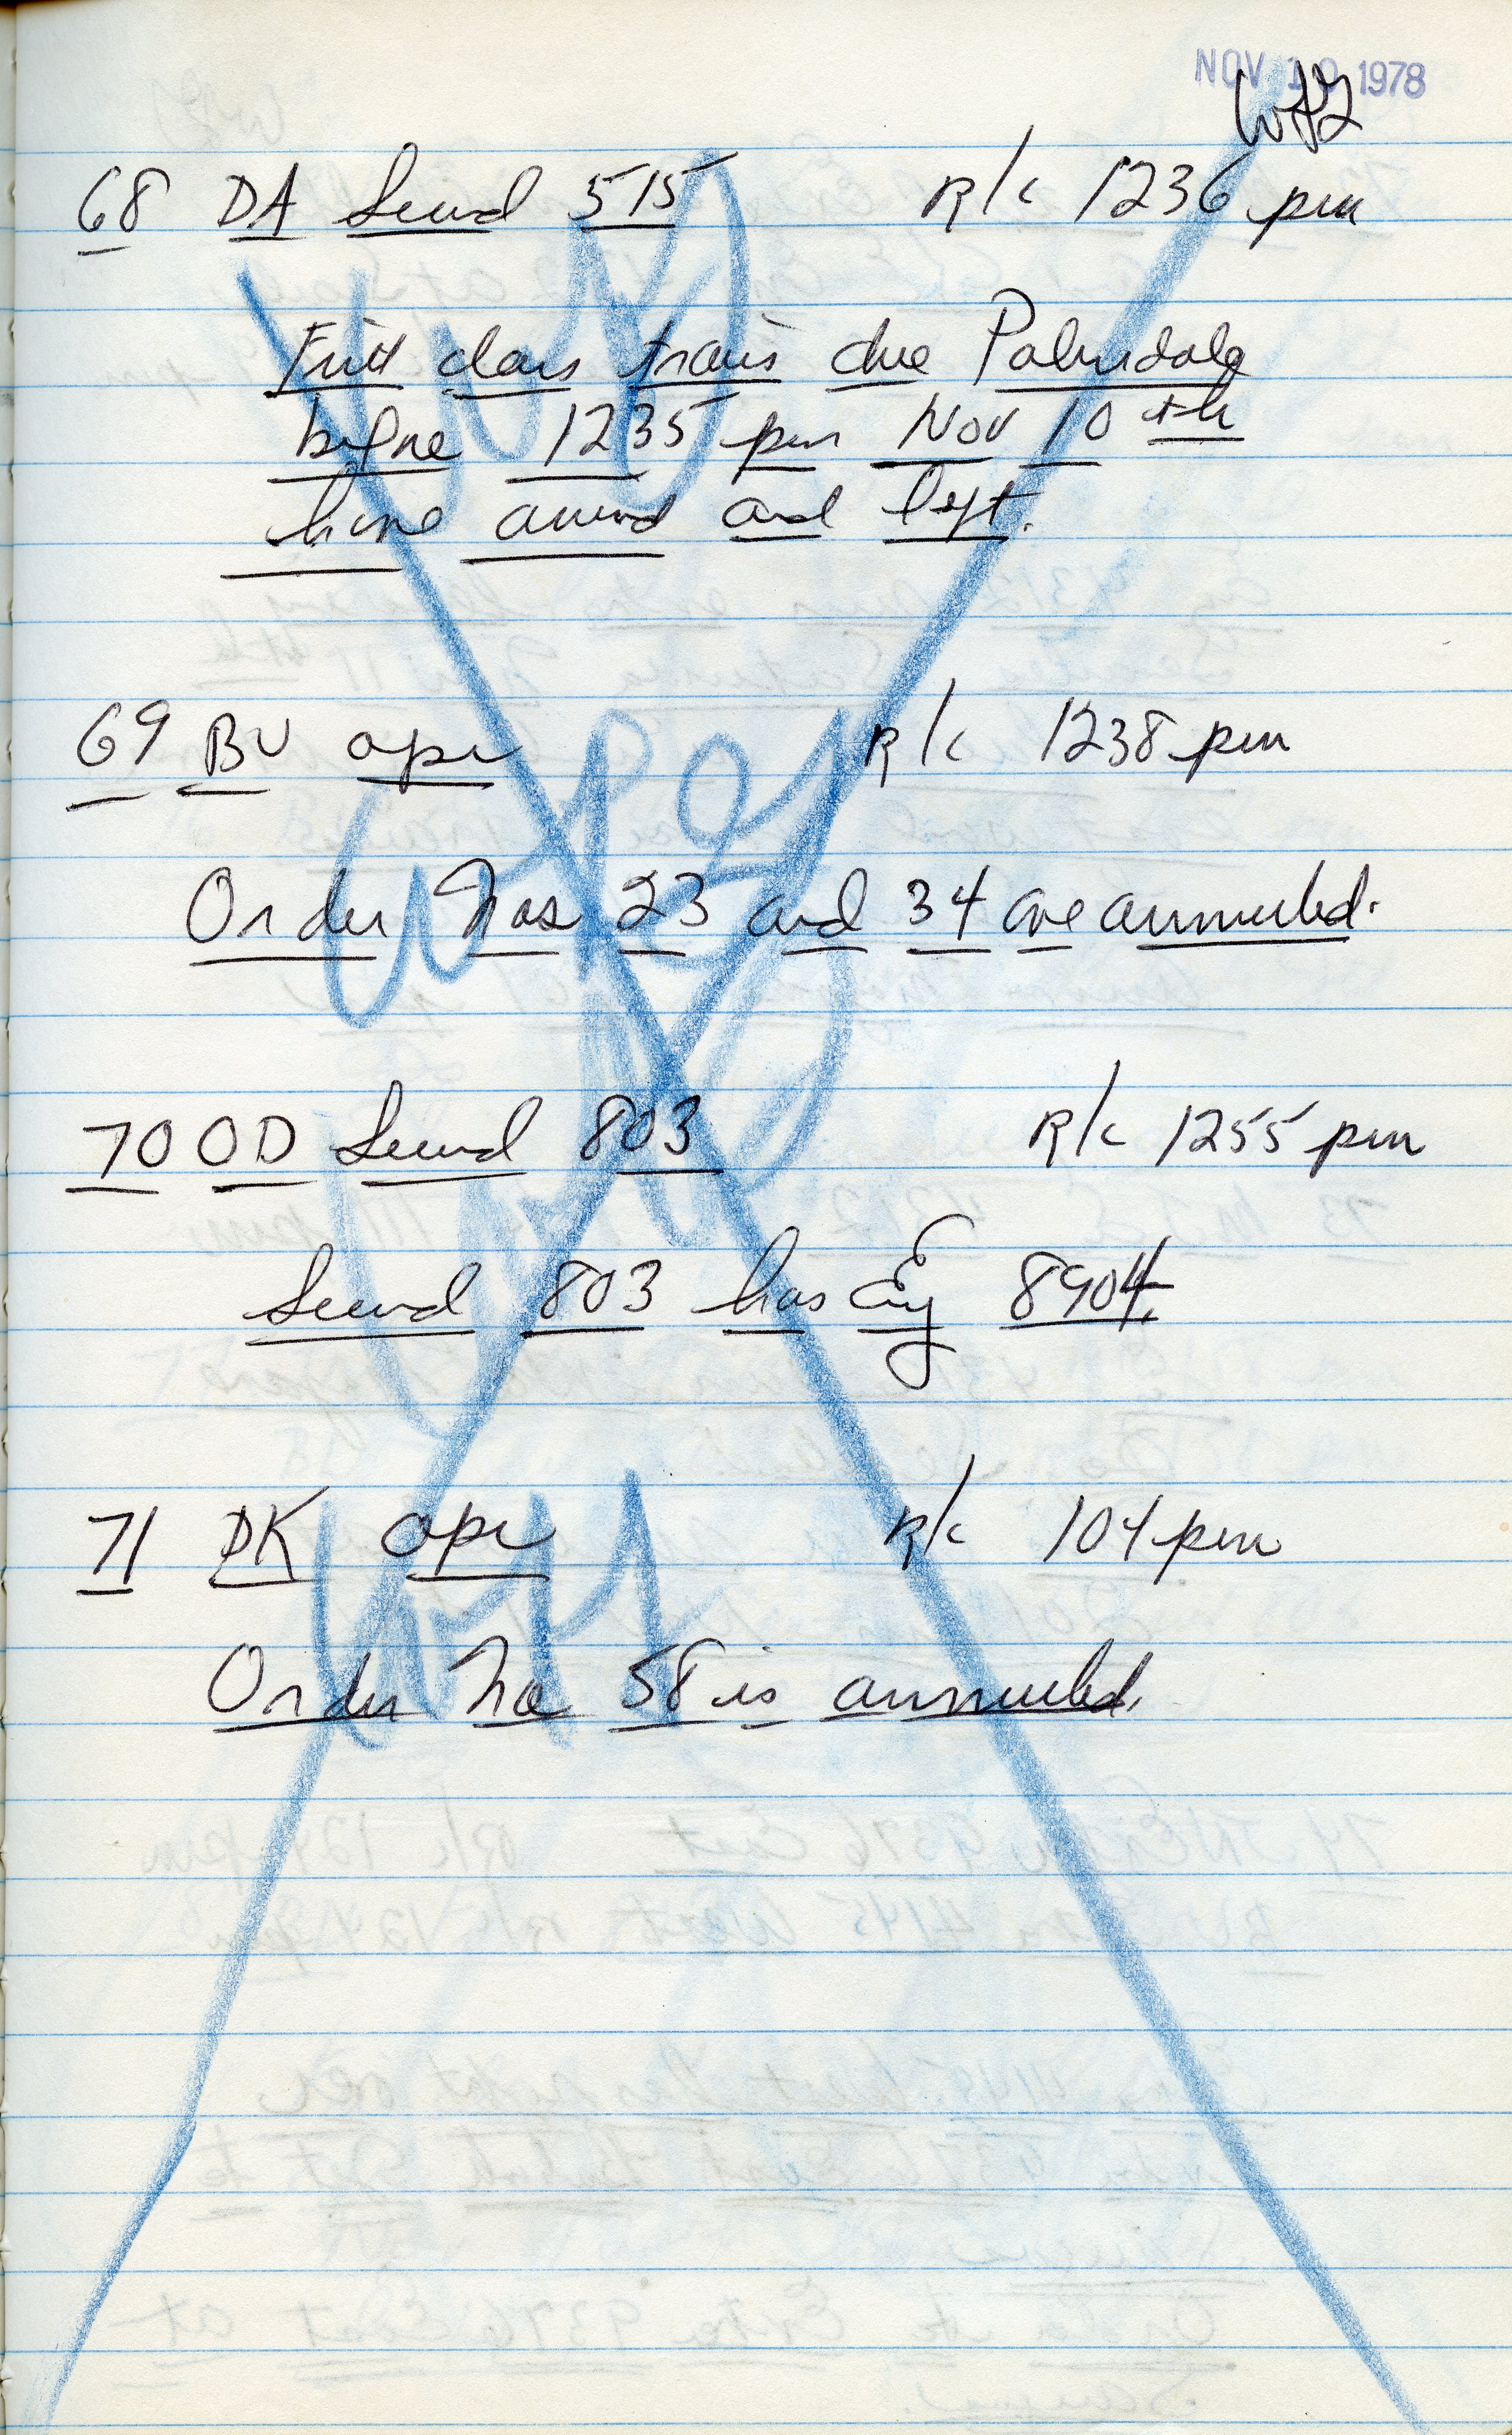 NOV 10 1978
68 DA Second 515 R/c 1236 pm
First class trains due Palmdale
before 1235 pm Nov 10 th
have arrived and left.
69 BU opr R/c 1238 pm
Order Nos 23 and 34 are annulled.
70 OD Second 803 R/c 1255 pm
Second 803 has Eng 8904.
71 DK opr R/c 104 pm
Order No 58 is annulled.